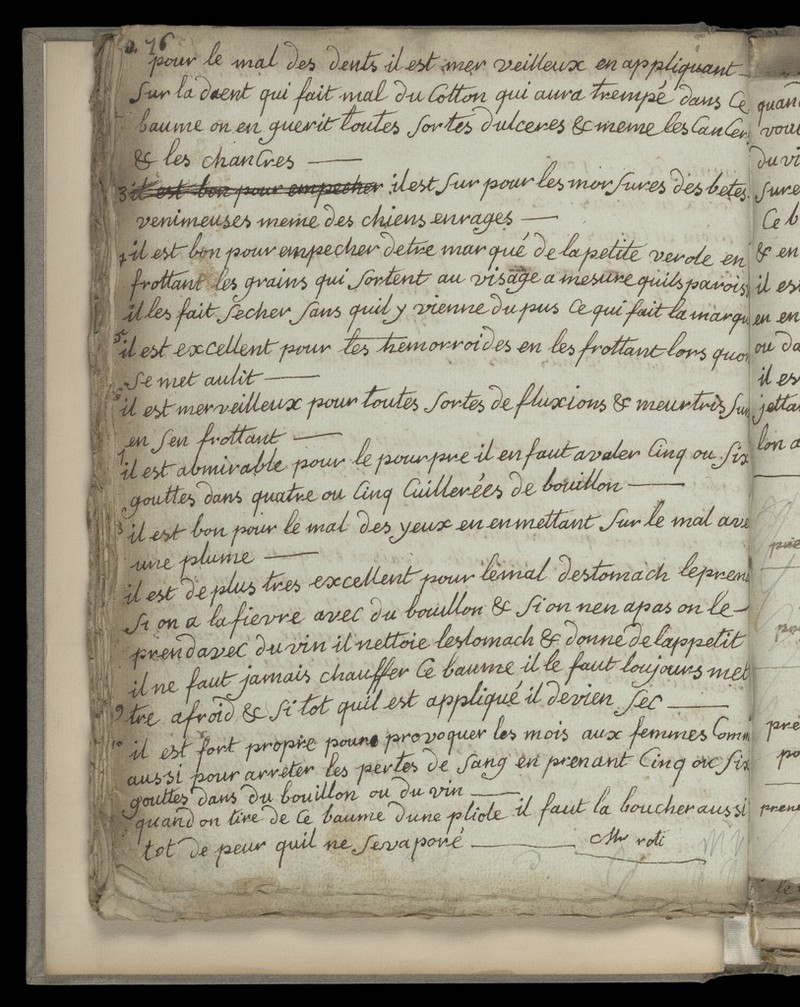 76
pour le mal des dents il est mer veilleux en appliquant
sur la dent qui fait mal du Cotton qui aura trempé dans Ce
baume on en guerit toutes sortes dulceres & meme les CanCer
& les chanCres
3 il est bon pour empecher il est sur pour les mor sures des betes
venimeuses meme des chiens enrages
4 il est bon pour empecher detre marqué de la petite verole en
frottant les grains qui sortent au visage a mesure quils parois
il les fait secher sans quil y vienne du pus Ce qui fait la marqu
5 il est excellent pour les hemorroides en les frottant lors quon
se met aulit
6 il est merveilleux pour toutes sortes de fluxions & meurtris sur
en sen frottant
7 il est admirable pour le pourpre il en faut avaler Cinq ou six
gouttes dans quatre ou Cinq Cuillerées de bouillon
8 il est bon pour le mal des yeux en en mettant sur le mal ave
une plume
il est de plus tres excellent pour lemal destomach lepren
si on a la fievre avec du bouillon & si on nen apas on le
prend avec du vin il nettoie lestomach & donne de lappetit
il ne faut jamais chauffer Ce baume il le faut toujours met
9 tre afroid & si tot quil est appliqué il devien sec
10 il est fort propre pour provoquer les mois aux femmes Comm
aussi pour arréter les pertes de sang en prenant Cinq ou six
gouttes dans du bouillon ou du vin
quand on tire de Ce baume dune pliole il faut la boucher aussi
tot de peur quil ne sevaporé Mr roti
quan
vout
du vi
sure
Ce b
& en
il es
en en
ou da
il es
jetta
lon a
pre
po
pren